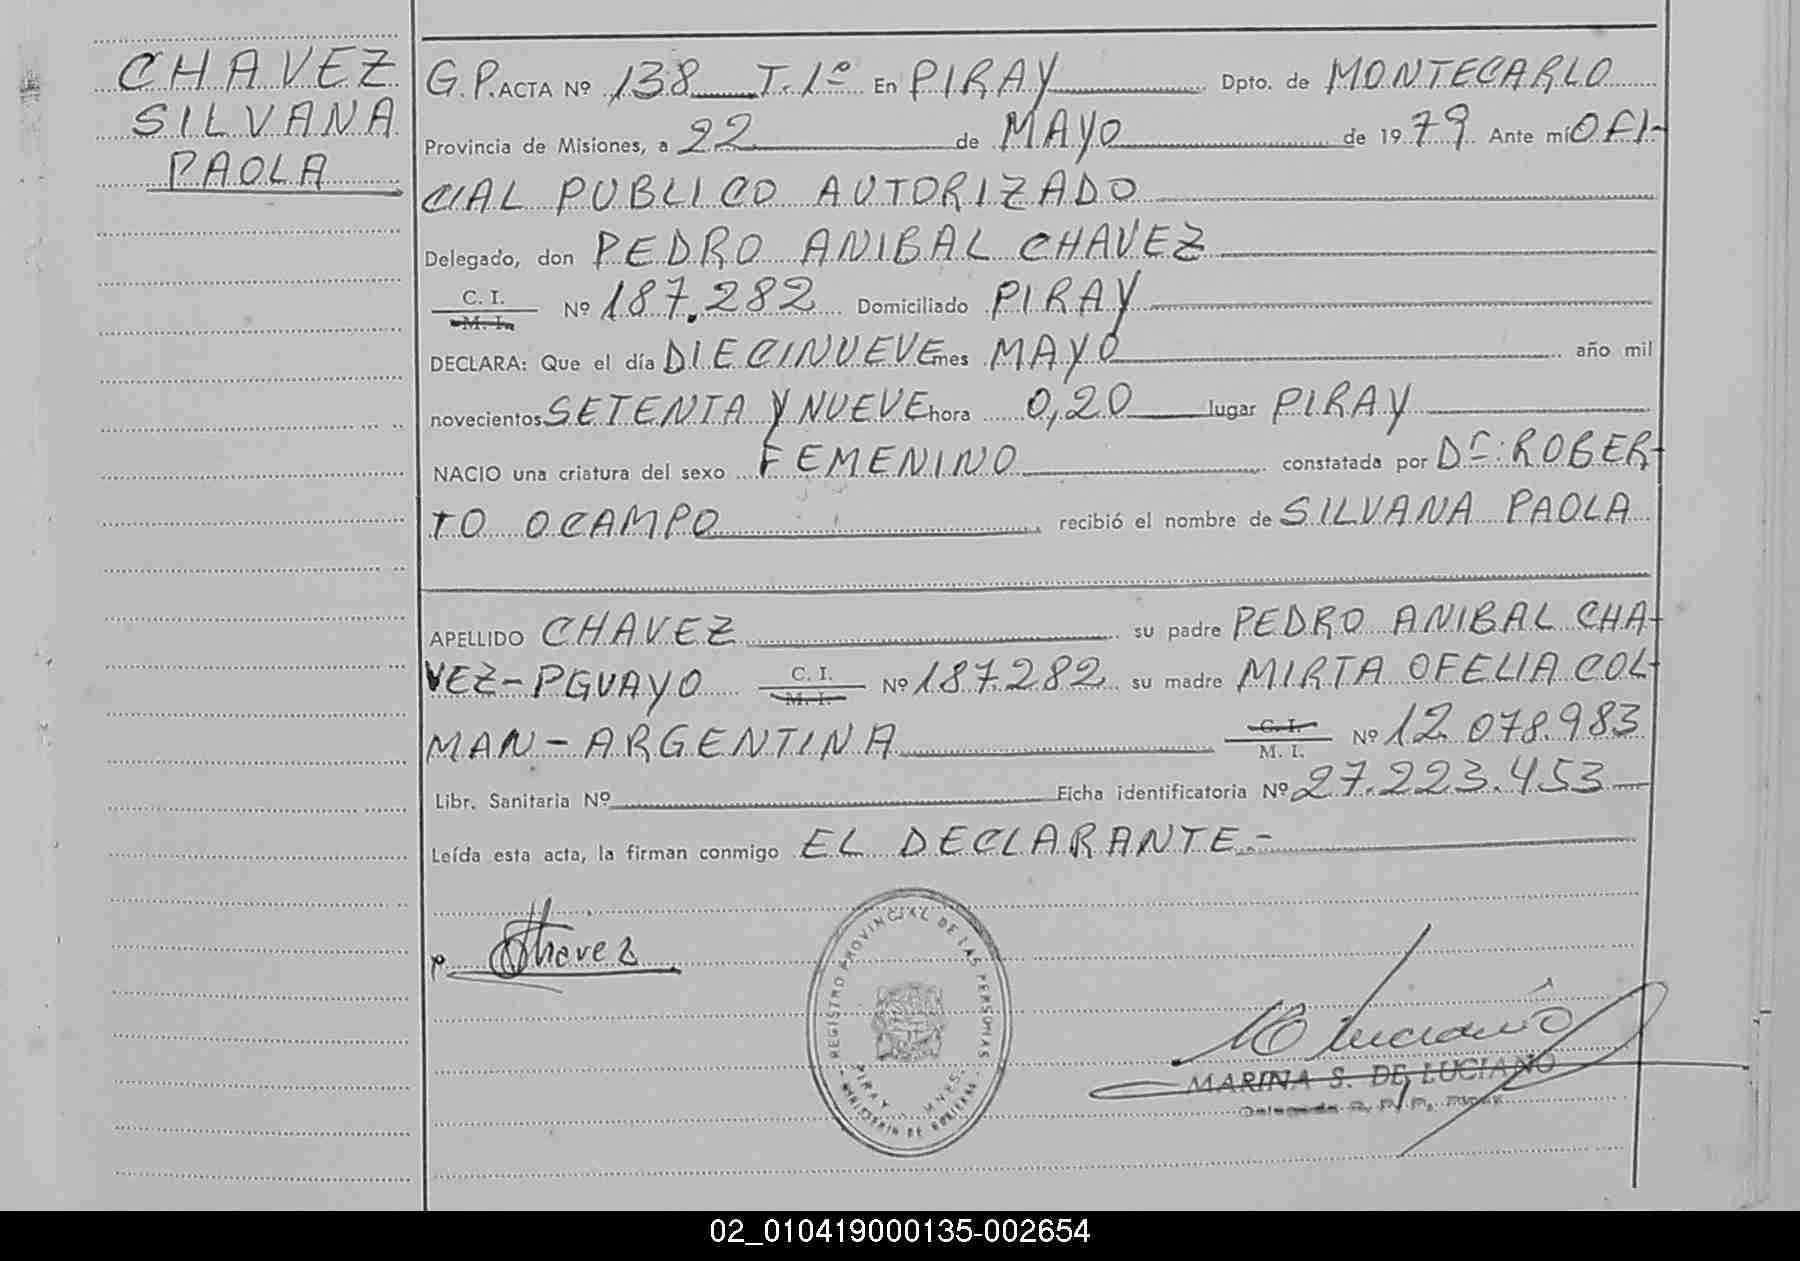 CHAVEZ
SILVANA
PAOLA
G.P. ACTA Nº 138 T. 1º En PIRAY Dpto. de MONTECARLO
Provincia de Misiones, a 22 de MAYO de 1979. Ante mí OFI-
CIAL PUBLICO AUTORIZADO
Delegado, don PEDRO ANIBAL CHAVEZ
C. I.
M. I.
Nº 187.282 Domiciliado PIRAY
DECLARA: Que el día DIECINUEVE mes MAYO año mil
novecientos SETENTA Y NUEVE hora 0,20 lugar PIRAY
NACIO una criatura del sexo FEMENINO constatada por Dr: ROBER-
TO OCAMPO recibió el nombre de SILVANA PAOLA
APELLIDO CHAVEZ su padre PEDRO ANIBAL CHA-
VEZ-PGUAYO C. I. M. I. Nº 187.282 su madre MIRTA OFELIA COL-
MAN-ARGENTINA C. I. M. I. Nº 12.078.983
Libr. Sanitaria Nº Ficha identificatoria Nº 27.223.453
Leída esta acta, la firman conmigo EL DECLARANTE.-
Chavez
REGISTRO PROVINCIAL DE LAS PERSONAS
PIRAY - MNES.
MINISTERIO DE GOBIERNO
Luciano
MARINA S. DE LUCIANO
02_010419000135-002654